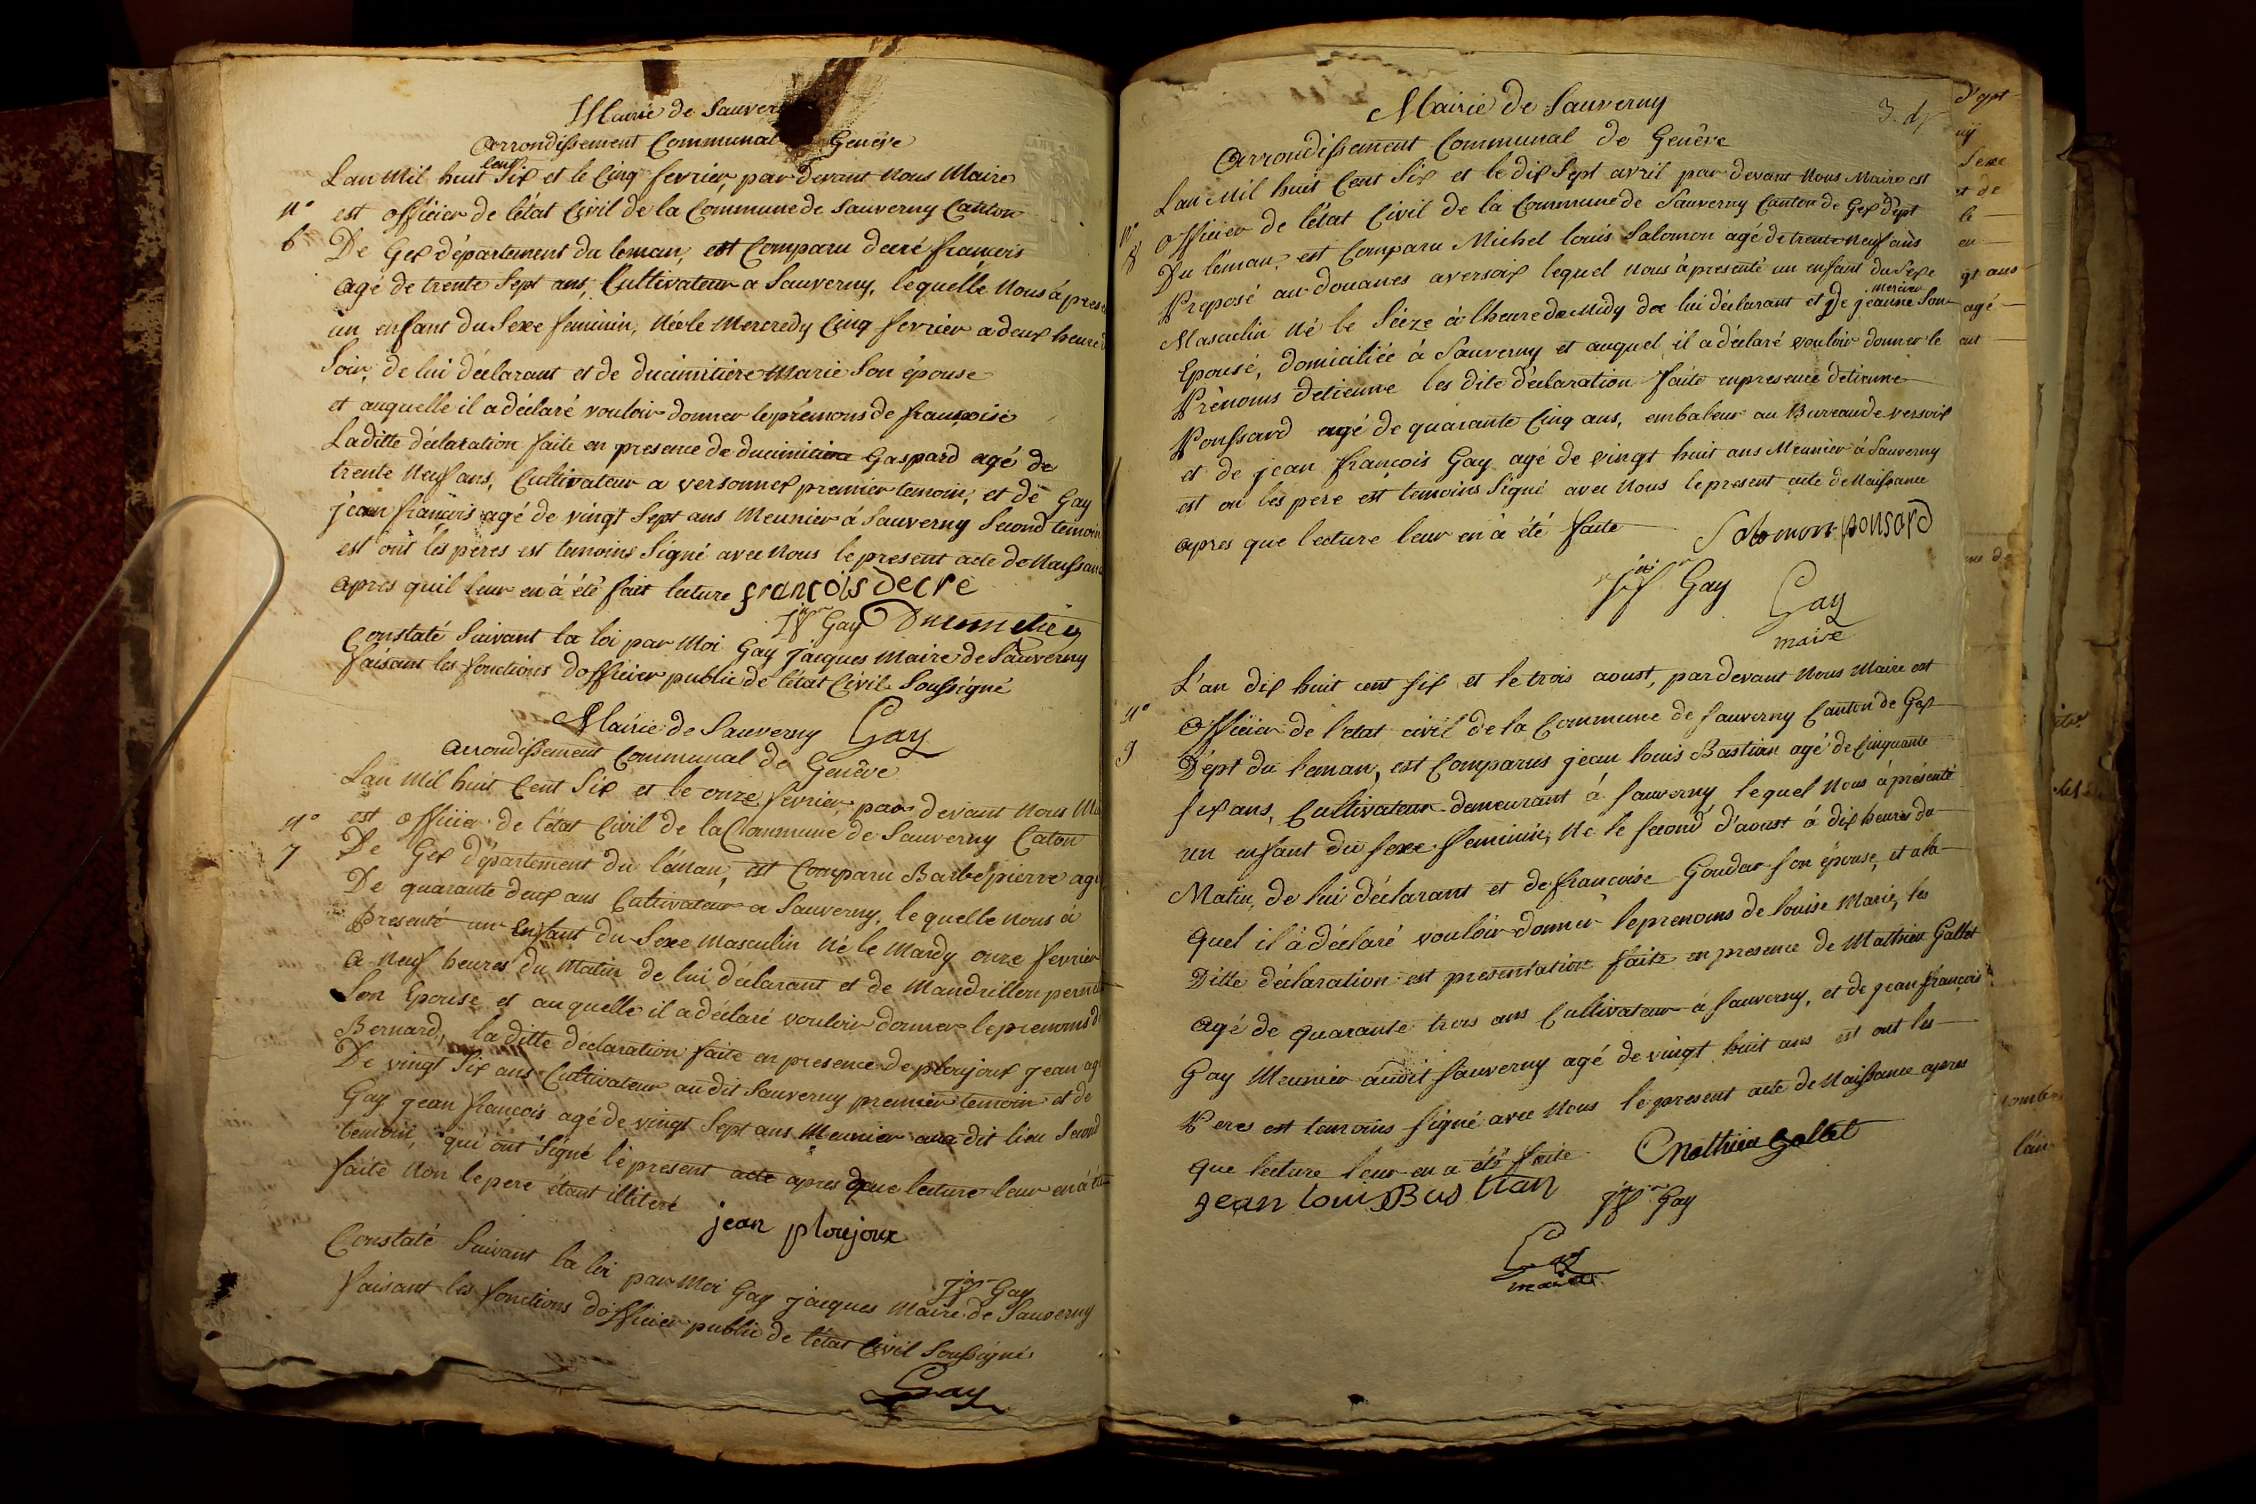 Mairie de Sauver
arrondissement Communal Genève
Lan Mil huit cent Six et le Cinq fevrier, par devant Nous Maire
n° est officier de létat Civil de la Commune de Sauverny Canton
6 De Gex département du leman, est Comparu decré francois
agé de trente Sept ans, Cultivateur a Sauverny, lequelle Nous à prese
un enfant du Sexe feminin, Néele Mercredy Cinq fevrier a deux heure
Soir, de lui déclarant et de ducimitière Marie Son épouse
et auquelle il a déclaré vouloir donner le prénoms de francoise
Laditte déclaration faite en presence de ducimitière Gaspard agé de
trente Neuf ans, Cultivateur a versonnex premier temoin, et de Gay
jean francois agé de vingt Sept ans Meunier à Sauverny Second temoin
est ont les peres est temoins Signé avec Nous le present acte de Naissan
apres quil leur en à été fait lecture françois decre
jn fs Gay
Constaté Suivant la loi par Moi Gay jacques Maire de Sauverny
faisant les fonctions dofficier public de létat Civil Soussigné
Mairie de Sauverny Gay
arrondissement Communal de Genève
Lan Mil huit Cent Six et le onze fevrier, par devant Nous Ma
n° est officier de létat Civil de la Commune de Sauverny Caton
7 De Gex département du léman, est Comparu Barbe pierre agé
De quarante deux ans Cultivateur a Sauverny, lequelle Nous à
presenté un Enfant du Sexe Masculin Né le Mardy onze fevrier
a Neuf heures du Matin de lui déclarant et de Mandrillon
Son Epouse et auquelle il a déclaré vouloir donner le prenoms d
Bernard, la ditte déclaration faite en presence de ploujoux jean ag
De vingt Six ans Cultivateur audit Sauverny premier temoin et de
Gay jean francois agé de vingt Sept ans Meunier au dit lieu Second
temoin, qui ont Signé le present acte apres que lecture leur en à ét
faite Non le pere étant illiteré
jean ploujoux
jn fs Gay
Constaté Suivant la loi par Moi Gay jacques Maire de Sauverny
faisant les fonctions dofficier public de létat Civil Soussigné
Gay
Mairie de Sauverny
arrondissement Communal de Genève
Lan Mil huit Cent Six et le dix Sept avril par devant Nous Maire est
n° officier de létat Civil de la Commune de Sauverny Canton de Gex Dépt
8 Du léman, est Comparu Michel louis Salomon agé de trente Neuf ans
Preposé au douanes a versoix lequel Nous à presenté un enfant du Sexe
Masculin Né le Séize à lheure de Midy de lui déclarant et De jeanne mercier Son
Epouse, domiciliée à Sauverny et auquel il a déclaré vouloir donner le
Prénoms detienne les dite déclaration faite en presence detienne
Poussard agé de quarante Cinq ans, embaleur au Bureau de versoix
et de jean francois Gay agé de vingt huit ans Meunier à Sauverny
est on les pere est temoins Signé avec Nous le present acte de Naissance
apres que lecture leur en à été faite Salomon ponsard
jn fs Gay Gay
maire
L'an dix huit cent six et le trois aoust, par devant Nous Maire est
n° officier de l'etat civil de la Commune de Sauverny Canton de Gex
9 Dépt du leman, est Comparus jean louis Bastian agé de Cinquante
six ans, Cultivateur demeurant à Sauverny lequel Nous à présenté
un enfant du sexe feminin, Né le second d'aoust à dix heures du
Matin, de lui déclarant et de francoise Goudar son épouse, et a la
quel il à déclaré vouloir donner le prenoms de louise Marie, les
Ditte déclaration est presentation faite en presence de Mathieu Gallet
agé de quarante trois ans Cultivateur à Sauverny, et de jean françois
Gay Meunier audit Sauverny agé de vingt huit ans est ont les
Peres est temoins signé avec Nous le present acte de Naissance apres
que lecture leur en a été faite Mathieu Gallet
jean loui Bastian jn fs Gay
Gay
maire